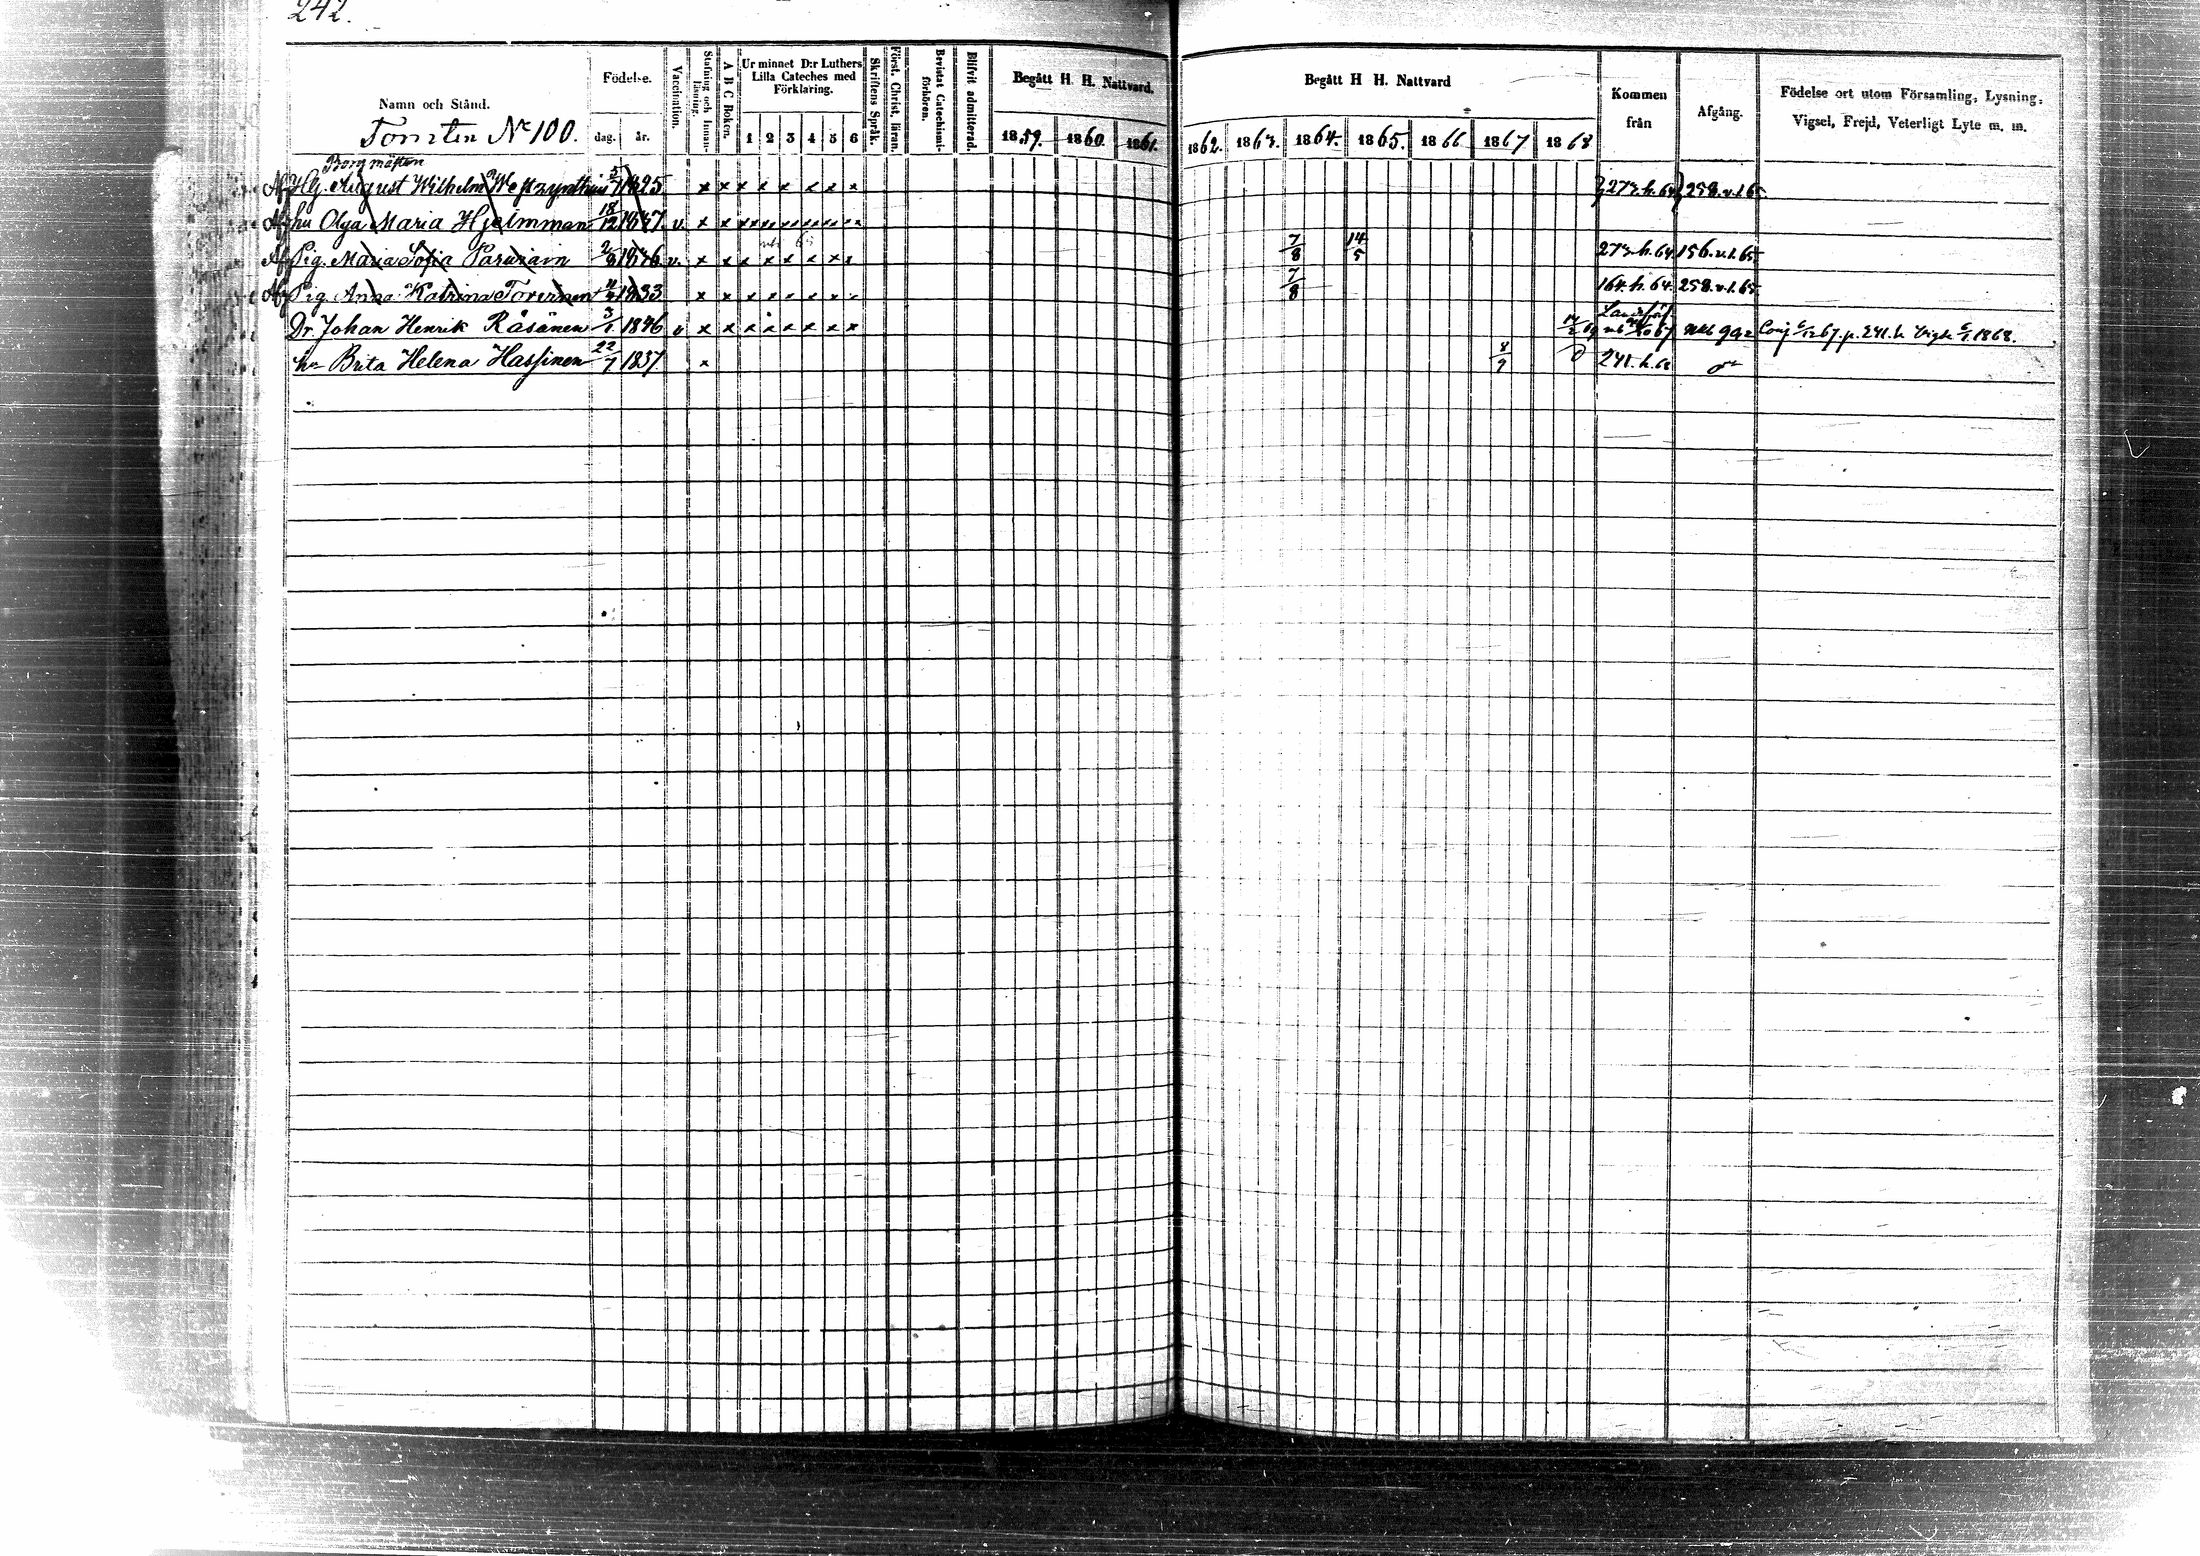 242.
Namn och Stånd.
Tomten No 100.
Födelse.
dag. år.
Vaccination.
Stafning och Innan-läsning.
A B C Boken.
Ur minnet D:r Luthers Lilla Cateches med Förklaring.
1 2 3 4 5 6
Skriftens Språk.
Först. Christ. läran.
Bevistat Catechismi-förhören.
Blifvit admitterad.
Begått H. H. Nattvard.
1859. 1860. 1861.
Begått H H. Nattvard
1862. 1863. 1864. 1865. 1866 1867 1868
Kommen från
Afgång.
Födelse ort utom Församling, Lysning, Vigsel, Frejd, Veterligt Lyte m. m.
Borgmästen
Af Hlg. August Wilhelm Wefzynthius 5/7 1825 x x x x x x x x 273. h. 64 258. v. l. 65.
Af hu Olga Maria Hjelmman 18/12 1847. v. x x x x x x x x
Af Pig. Maria Sofia Parviain 2/8 1846 v. x x x x x x x x 7/8 14/5 273. h. 64. 156. v. l. 65.
Af Pig Anna Katrina Torvinen 1833 x x x x x x x x 7/8 164. h. 64. 258. v. l. 65.
Dr. Johan Henrik Räsänen 3/1 1846 v x x x x x x x x Landsförs. 67 1868.
hu Brita Helena Hassinen 22/7 1837. x 8/9 241. h. 68